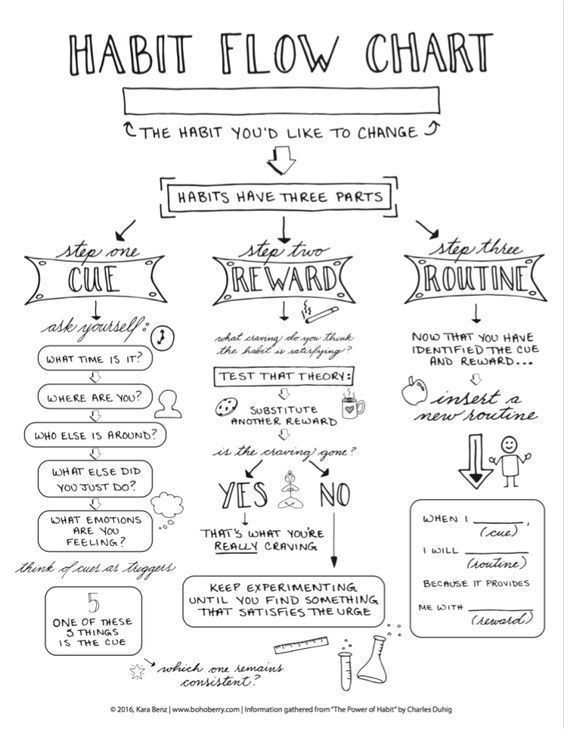 HABIT FLOW CHART
THE HABIT YOU'D LIKE TO CHANGE
HABITS HAVE THREE PARTS
step one
CUE
ask yourself:
WHAT TIME IS IT?
WHERE ARE YOU?
WHO ELSE IS AROUND?
WHAT ELSE DID
YOU JUST DO?
WHAT EMOTIONS
ARE YOU
FEELING?
think of cues as triggers
5
ONE OF THESE
5 THINGS
IS THE CUE
which one remains
consistent?
step two
REWARD
what craving do you think
the habit is satisfying?
TEST THAT THEORY:
SUBSTITUTE
ANOTHER REWARD
is the craving gone?
YES
NO
THAT'S WHAT YOU'RE
REALLY CRAVING
KEEP EXPERIMENTING
UNTIL YOU FIND SOMETHING
THAT SATISFIES THE URGE
step three
ROUTINE
NOW THAT YOU HAVE
IDENTIFIED THE CUE
AND REWARD...
insert a
new routine
WHEN I ______,
(cue)
I WILL ______
(routine)
BECAUSE IT PROVIDES
ME WITH ______
(reward)
© 2016, Kara Benz | www.bohoberry.com | Information gathered from "The Power of Habit" by Charles Duhig